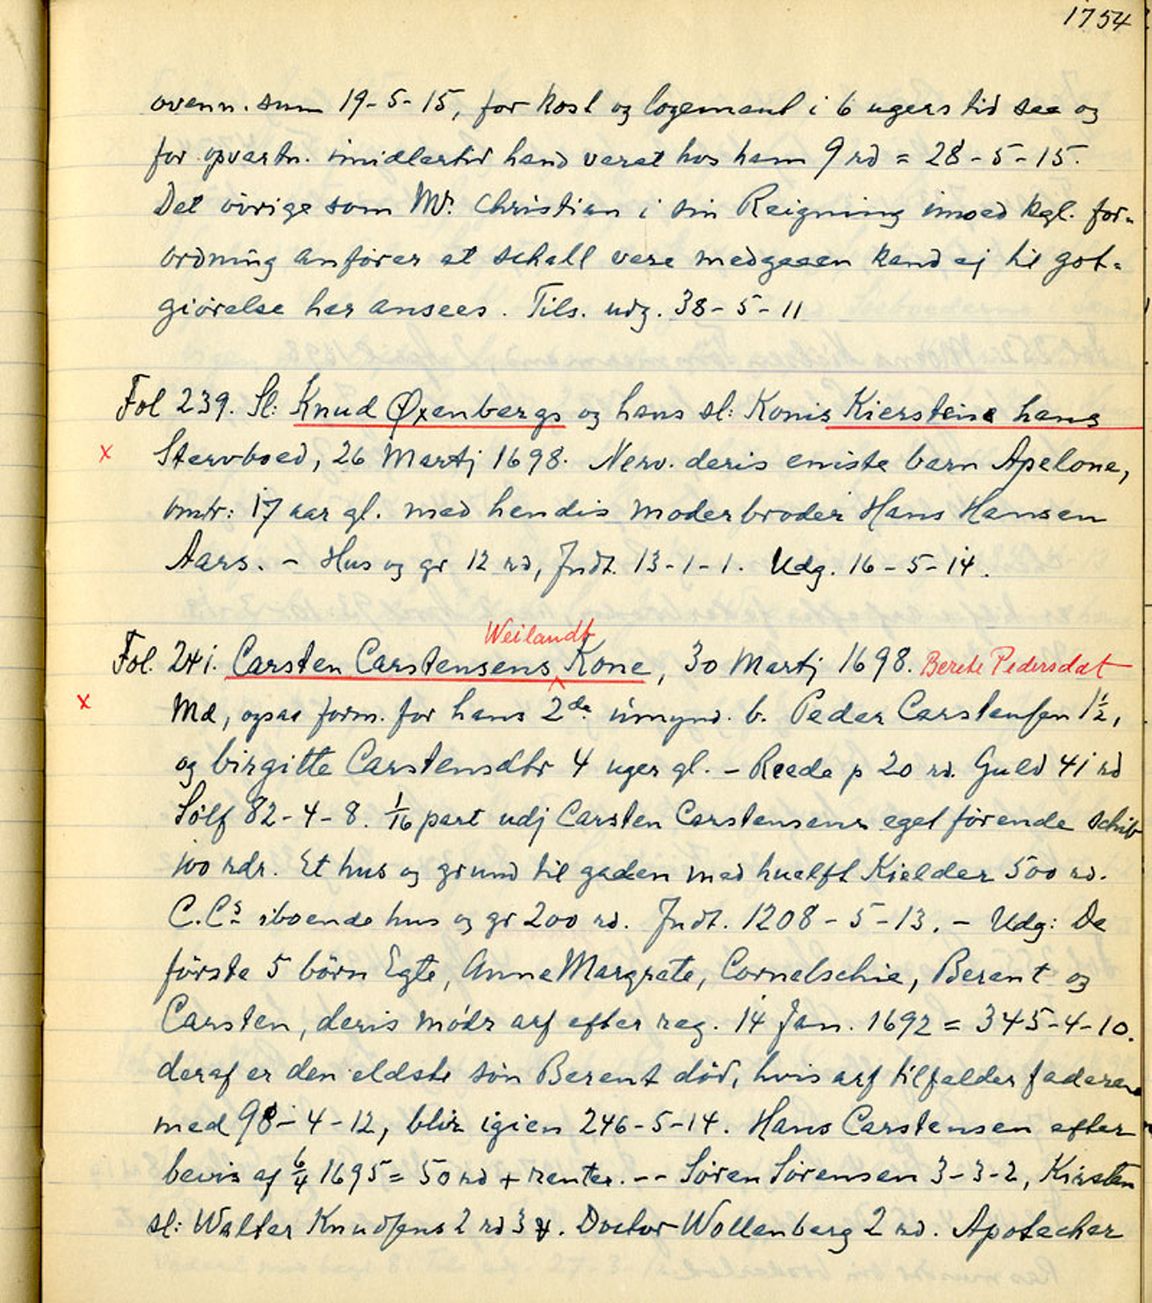 1754
ovenn. sum 19-5-15, for kost og logement i 6 ugers tid saa og
for opvartn. imidlertid hand veret hos ham 9 rd = 28-5-15.
Det övrige som Mr. Christian i sin Reigning imod kgl. for-
ordning anförer at schall vere medgaaen kand ej til got-
giörelse her ansees. Tils. udg. 38-5-11
Fol 239. Sl: Knud Øxenbergs og hans sl: Konis Kierstine hans
x Stervboed, 26 Martj 1698. Nerv. deris eniste barn Apelone,
omtr: 17 aar gl. med hendis moderbroder Hans Hansen
Aars. - Hus og gr 12 rd, Indt. 13-1-1. Udg. 16-5-14.
Weilandt
Fol. 241. Carsten Carstensens Kone, 30 Martj 1698. Berete Pedersdat
x Md, ogsaa form. for hans 2de umynd. b. Peder Carstensen 1½,
og birgitte Carstensdtr 4 uger gl. - Reede p 20 rd. Guld 41 rd
Sölf 82-4-8. 1/16 part udj Carsten Carstensens eget förende schib
100 rdr. Et hus og grund til gaden med huelft Kielder 500 rd.
C.Cs iboende hus og gr 200 rd. Indt. 1208-5-13. - Udg: De
förste 5 börn Egte, Anne Margrete, Cornelschie, Berent og
Carsten, deris mödr arf efter reg. 14 Jan. 1692 = 345-4-10.
deraf er den eldste sön Berent död, hvis arf tilfalder faderen
med 98-4-12, blir igien 246-5-14. Hans Carstensen efter
bevis af 6/4 1695 = 50 rd + renter. -- Sören Sörensen 3-3-2, Kirsten
sl: Walter Knudsens 2 rd 3 ꝟ. Doctor Wollenberg 2 rd. Apotecher